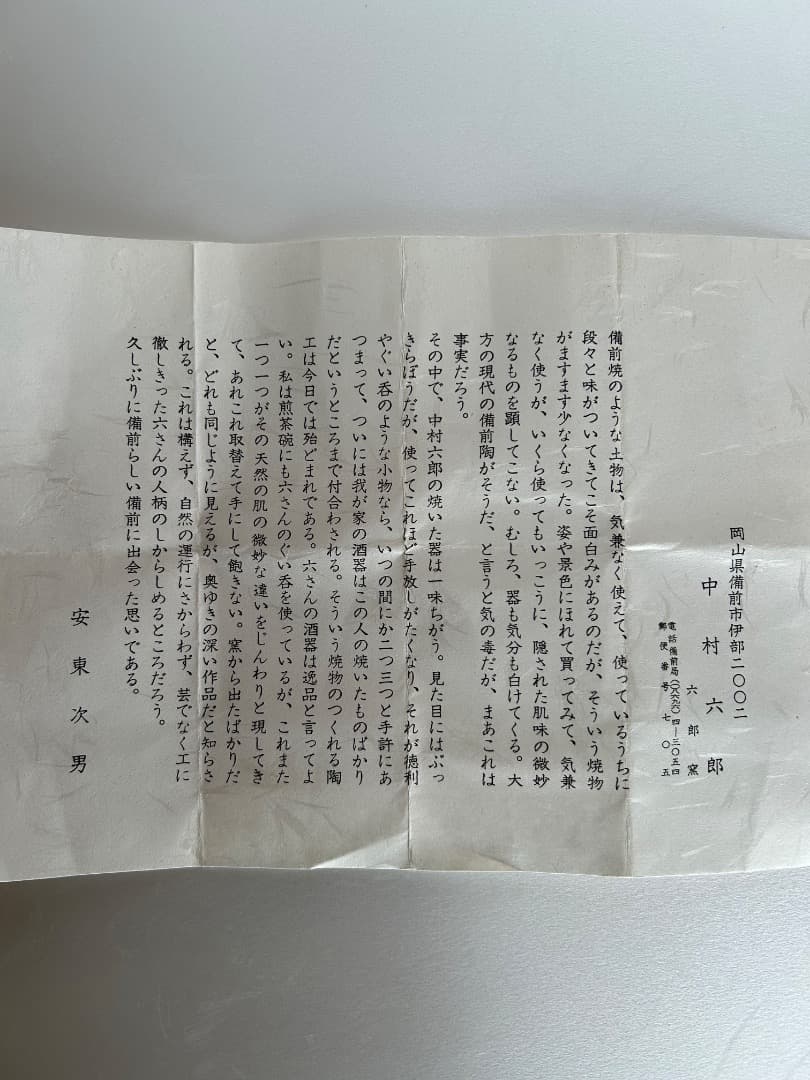 岡山県備前市伊部二〇〇二
中村六郎
六郎窯
電話備前局(〇八六九)六四―三〇五四
郵便番号七〇五
備前焼のような土物は、気兼なく使えて、使っているうちに
段々と味がついてきてこそ面白みがあるのだが、そういう焼物
がますます少なくなった。姿や景色にほれて買ってみて、気兼
なく使うが、いくら使ってもいっこうに、隠された肌味の微妙
なるものを顕してこない。むしろ、器も気分も白けてくる。大
方の現代の備前陶がそうだ、と言うと気の毒だが、まあこれは
事実だろう。
その中で、中村六郎の焼いた器は一味ちがう。見た目にはぶっ
きらぼうだが、使ってこれほど手放しがたくなり、それが徳利
やぐい呑のような小物なら、いつの間にか二つ三つと手許にあ
つまって、ついには我が家の酒器はこの人の焼いたものばかり
だというところまで付合わされる。そういう焼物のつくれる陶
工は今日では殆どまれである。六さんの酒器は逸品と言ってよ
い。私は煎茶碗にも六さんのぐい呑を使っているが、これまた
一つ一つがその天然の肌の微妙な違いをじんわりと現してき
て、あれこれ取替えて手にして飽きない。窯から出たばかりだ
と、どれも同じように見えるが、奥ゆきの深い作品だと知らさ
れる。これは構えず、自然の運行にさからわず、芸でなく工に
徹しきった六さんの人柄のしからしめるところだろう。
久しぶりに備前らしい備前に出会った思いである。
安東次男